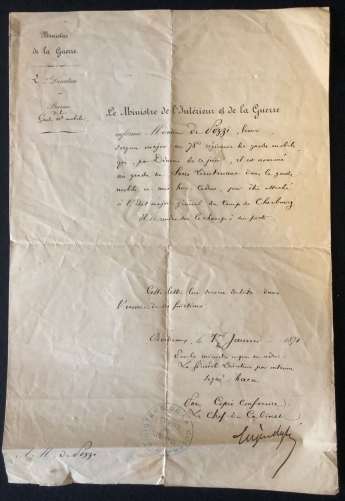 Ministère
de la Guerre
2e Direction
Bureau
de la
Garde Nle mobile
Le Ministre de l'Intérieur et de la Guerre
informe Monsieur de Pozzi, Henri
sergent major au 75e régiment de garde mobile
que, par Décision de ce jour, il est nommé
au grade de Sous Lieutenant dans la garde
mobile hors cadres, pour être attaché
à l'Etat major général du Camp de Cherbourg
Il se rendra sur le champ à son poste.
Cette lettre lui servira de titre dans
l'exercice de ses fonctions
Bordeaux, le 17 Janvier 1871
Pour le ministre
Le Général Directeur par interim
signé
Pour Copie Conforme
Le Chef du Cabinet
A M. de Pozzi